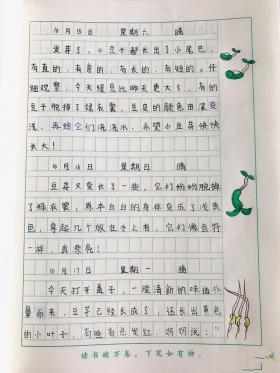 10月15日 星期六 晴
发芽了，小豆子都长出了小尾巴，
有直的，有弯的，有长的，有短的。仔
细观察，今天绿豆比昨天更大了，有的
豆子脱掉了绿衣裳，豆皮的颜色由深变
浅，再给它们洗洗水，希望小豆芽快快
长大！
10月16日 星期日 晴
豆芽又变长了一些，它们纷纷脱掉
了绿衣裳，原本白白的身体变成了浅黄
色，拿起几个放在手上看，它们像音符
一样，真漂亮！
10月17日 星期一 晴
今天打开盖子，一股清新的味道扑
鼻而来，豆芽已经长成了，还长出黄色
的小叶子，有些有点发红，奶奶说：“
读书破万卷，下笔如有神。